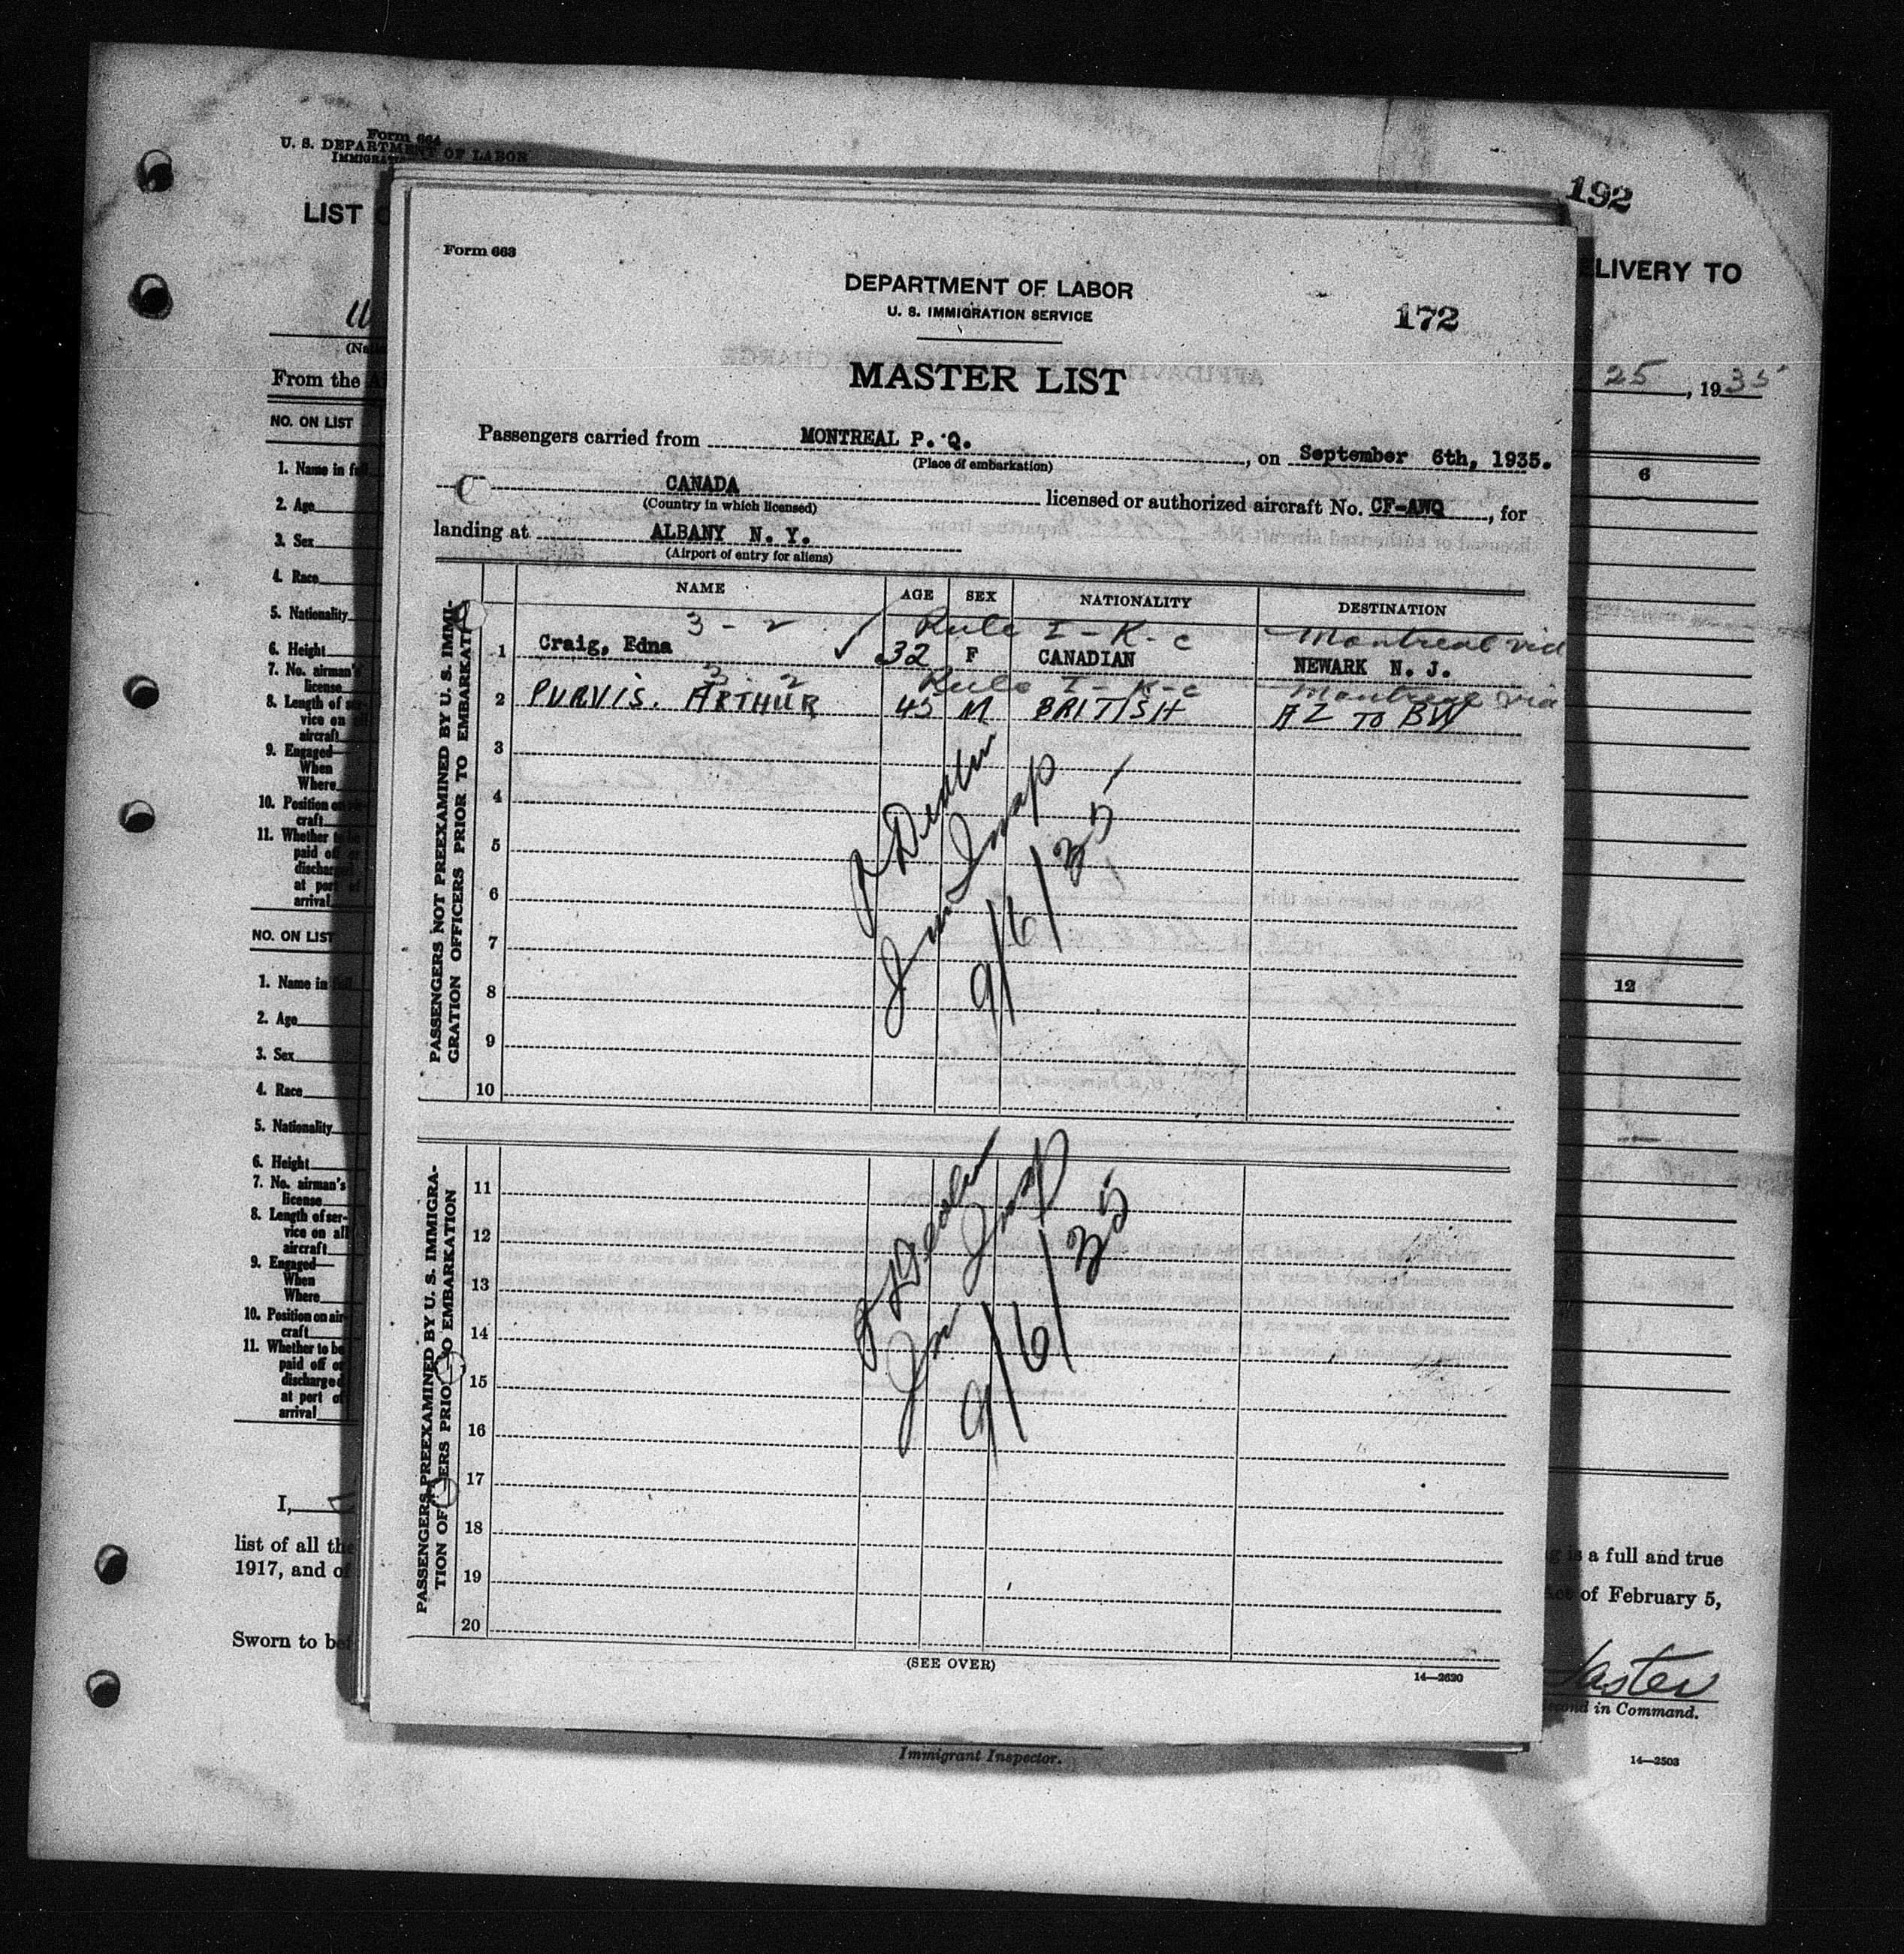 Form 664
U. S. DEPARTMENT OF LABOR
192
LIST
ELIVERY TO
Form 663
DEPARTMENT OF LABOR
U. S. IMMIGRATION SERVICE
172
MASTER LIST
From the
25, 1935
Passengers carried from MONTREAL P. Q. , on September 6th, 1935.
(Place of embarkation)
CANADA licensed or authorized aircraft No. CF-AWQ , for
(Country in which licensed)
landing at ALBANY N. Y.
(Airport of entry for aliens)
NAME AGE SEX NATIONALITY DESTINATION
3-2 Rule I-K-c Montreal via
1 Craig, Edna ✓ 32 F CANADIAN NEWARK N. J.
3-2 Rule I-K-c Montreal via
2 PURVIS. ARTHUR 45 M BRITISH AZ TO BW
3
4
5
6
7
8
9
10
PASSENGERS NOT PREEXAMINED BY U. S. IMMI-
GRATION OFFICERS PRIOR TO EMBARKATI
9/6/35
11
12
13
14
15
16
17
18
19
20
PASSENGERS PREEXAMINED BY U. S. IMMIGRA-
TION OF ERS PRIO TO EMBARKATION
9/6/35
(SEE OVER)
14—2620
NO. ON LIST
1. Name in full
2. Age
3. Sex
4. Race
5. Nationality
6. Height
7. No. airman's
license
8. Length of ser-
vice on all
aircraft
9. Engaged—
When
Where
10. Position on air-
craft
11. Whether to be
paid off or
discharged
at port of
arrival
6
NO. ON LIST
1. Name in full
2. Age
3. Sex
4. Race
5. Nationality
6. Height
7. No. airman's
license
8. Length of ser-
vice on all
aircraft
9. Engaged—
When
Where
10. Position on air-
craft
11. Whether to be
paid off or
discharged
at port of
arrival
12
I,
list of all the
is a full and true
1917, and of
Act of February 5,
Sworn to bef
Second in Command.
Immigrant Inspector.
14—2503